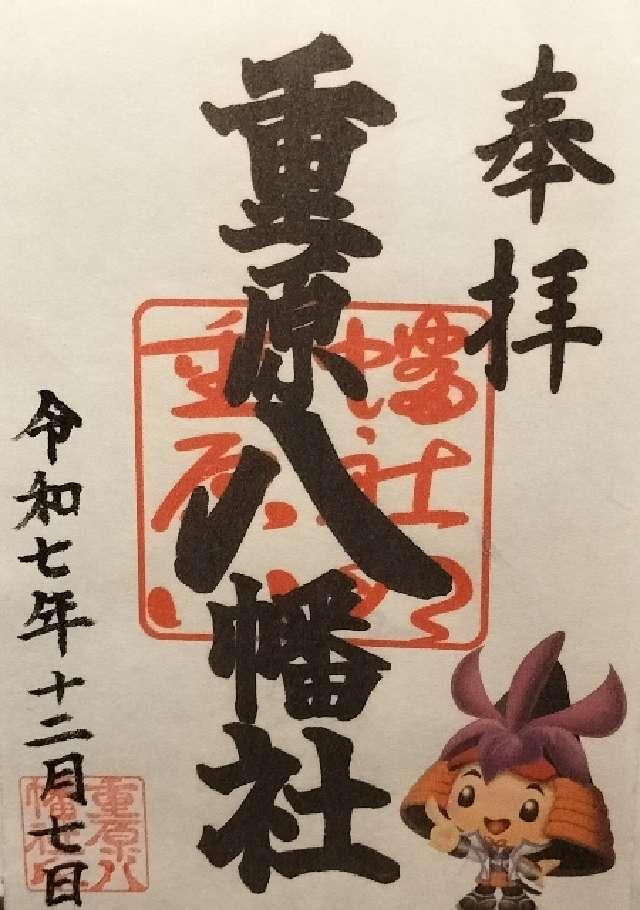 奉拝
重原八幡社
令和七年十二月七日
重原八
幡社印